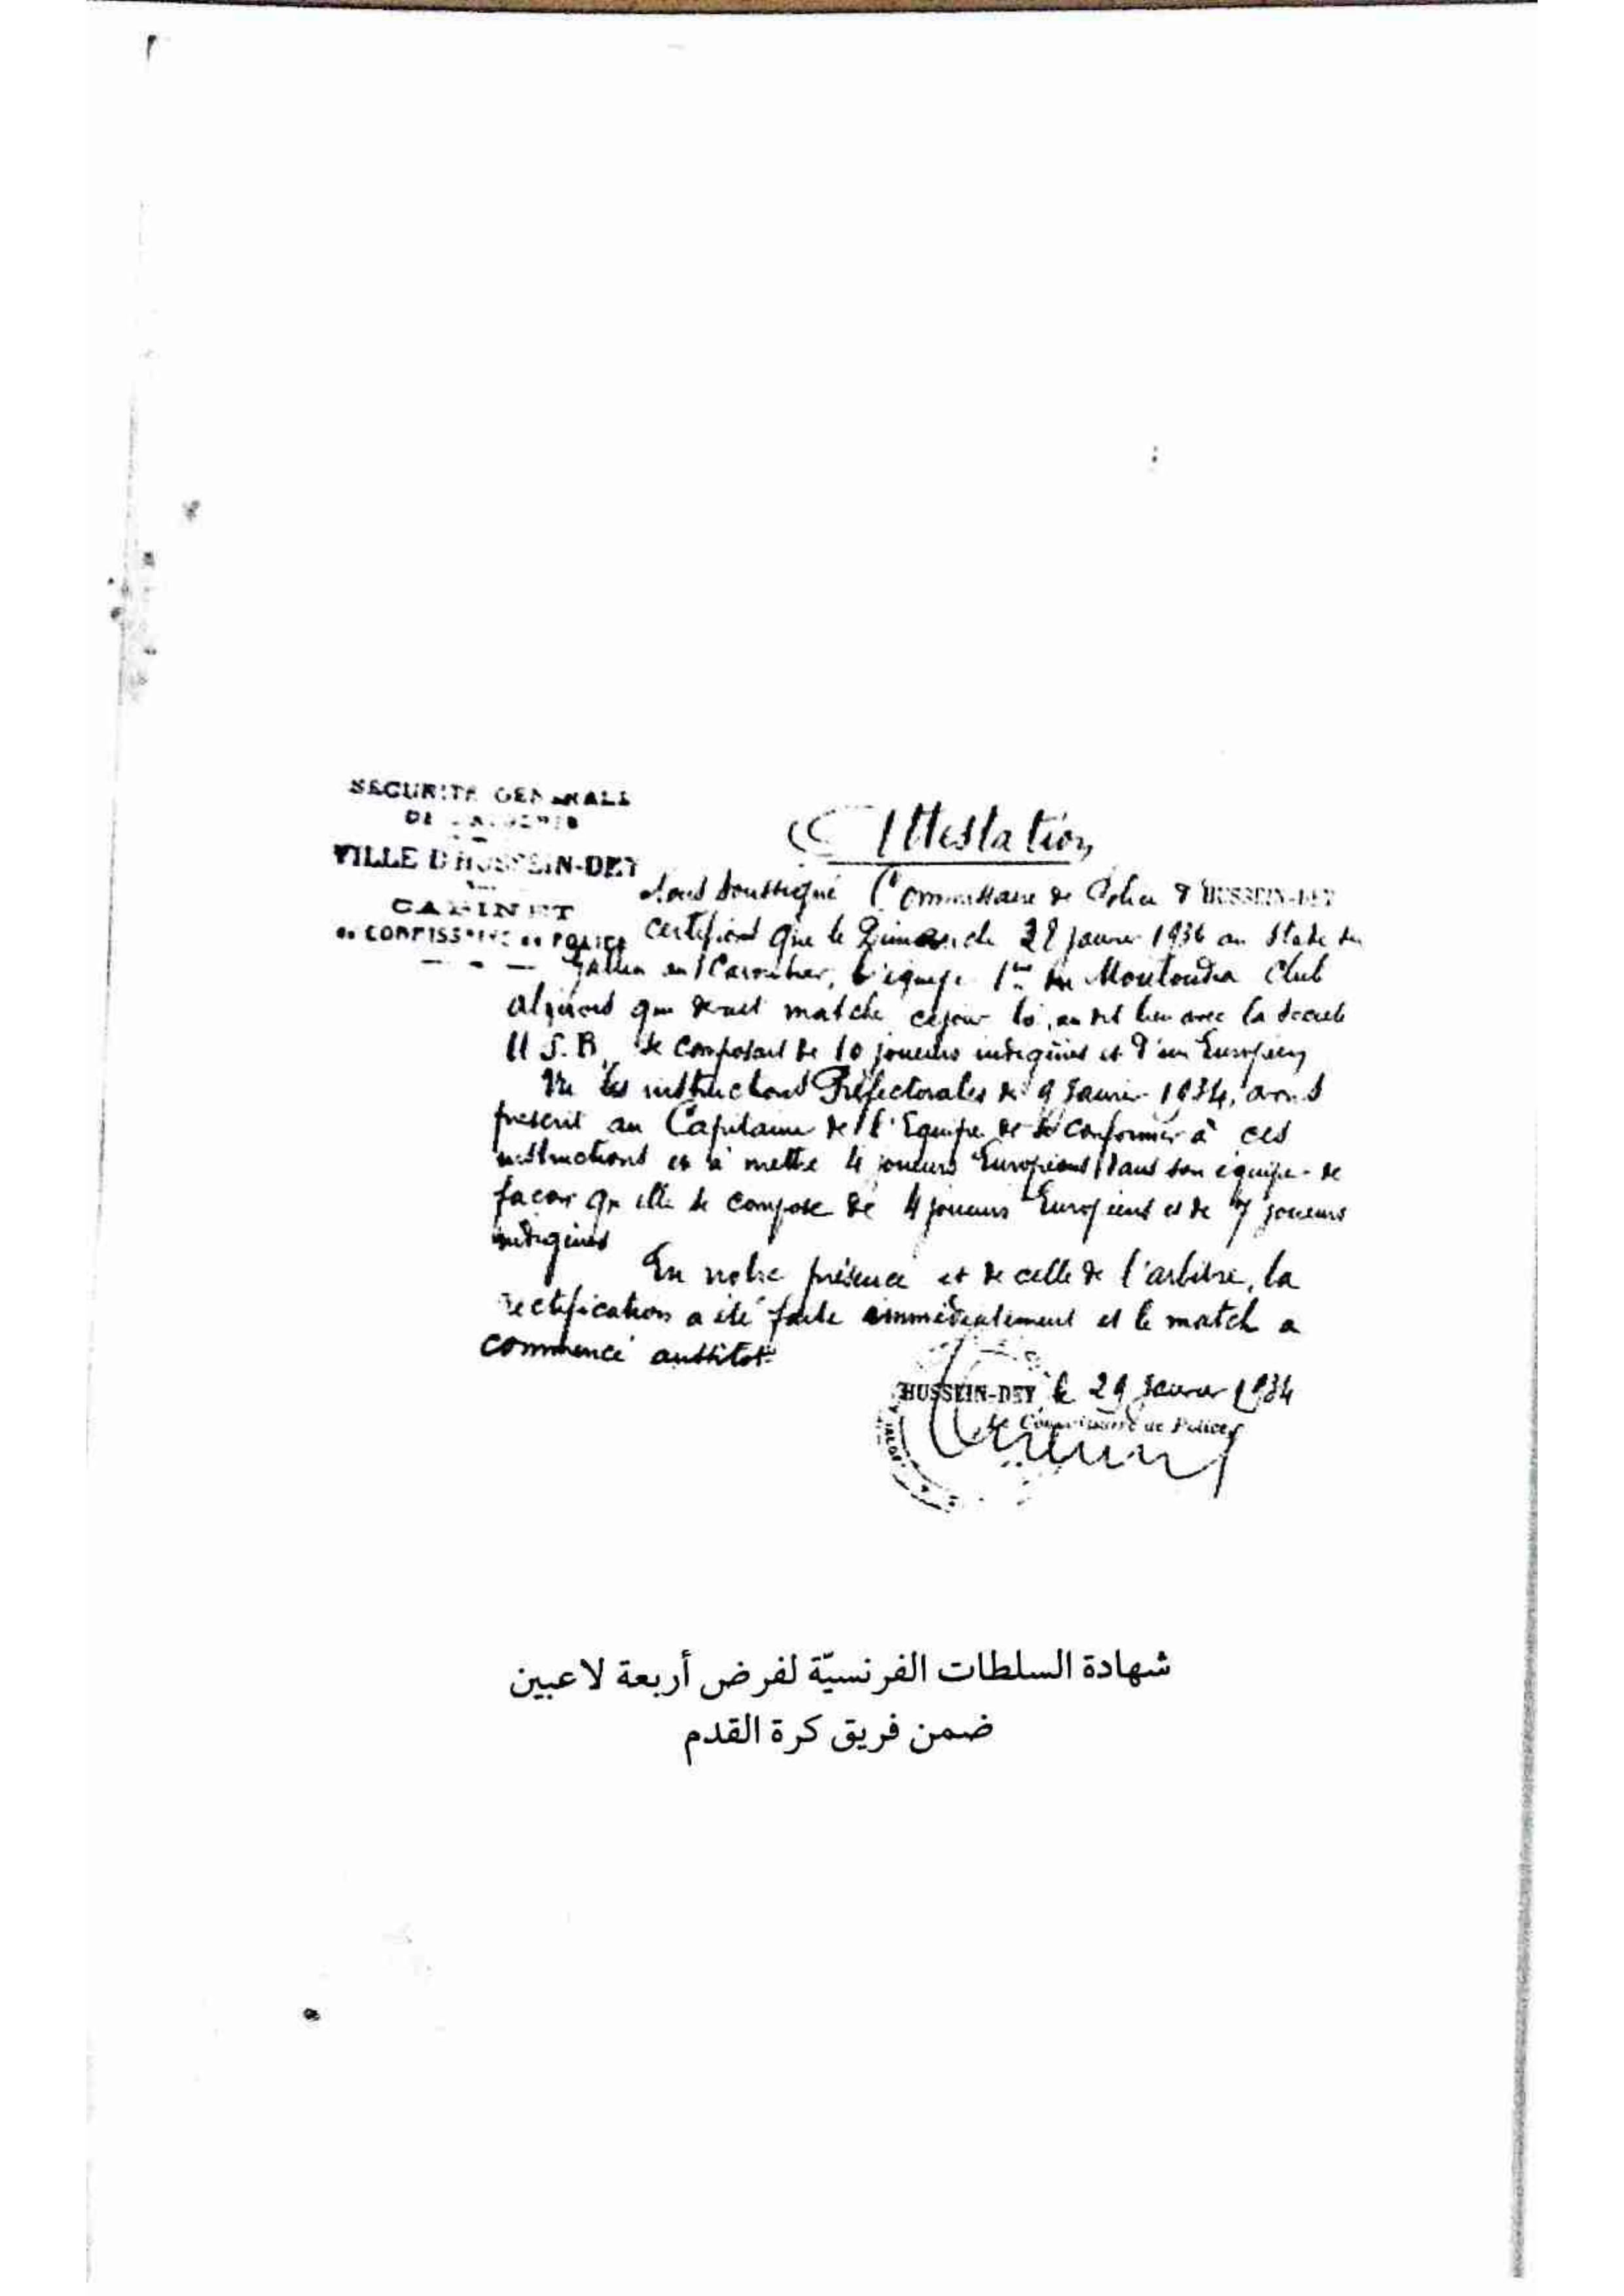 SECURITE GENERALE
VILLE D'HUSSEIN-DEY
CABINET
DU COMMISSAIRE DE POLICE
Attestation
Nous soussigné Commissaire de Police d'HUSSEIN-DEY
certifions que le Dimanche 28 janvier 1934 au Stade du
l'équipe 1ère du Mouloudia Club
algérois qui devait matcher ce jour là, au dit lieu avec la Société
U S. B, se composait de 10 joueurs indigènes et d'un Européen
Vu les instructions Préfectorales du 9 Janvier 1934, avons
prescrit au Capitaine de l'Equipe de se conformer à ces
instructions et à mettre 4 joueurs Européens dans son équipe de
façon qu'elle se compose de 4 joueurs Européens et de 7 joueurs
indigènes
En notre présence et de celle de l'arbitre, la
rectification a été faite immédiatement et le match a
commencé aussitôt.
HUSSEIN-DEY, le 29 Janvier 1934
Le Commissaire de Police
شهادة السلطات الفرنسيّة لفرض أربعة لاعبين
ضمن فريق كرة القدم